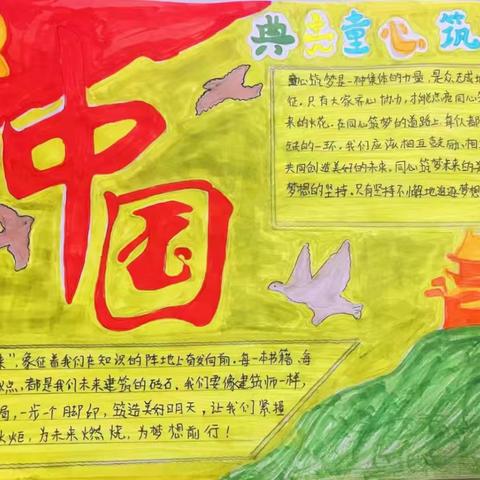 典童心筑
中国
童心筑梦是一种集体的力量,是众志成
征,只有大家齐心协力,才能点亮同心筑
来的火花。在同心筑梦的道路上,每个都
缺的一环,我们应该相互鼓励,相
共同创造美好的未来。同心筑梦未来的
梦想的坚持。只有坚持不懈地追逐梦想
来",象征着我们在知识的阵地上奋发向前。每一本书籍,每
点,都是我们未来建筑的砖石。我们要像建筑师一样,
局,一步一个脚印,筑造美好明天,让我们紧握
火炬,为未来燃烧,为梦想前行!